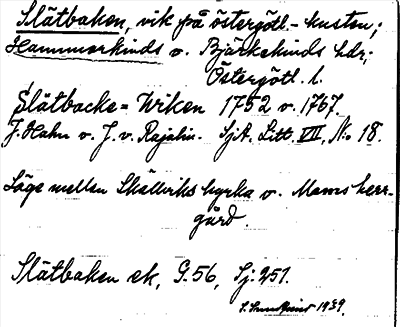 Slätbaken, vik på östergötl.-kusten;
Hammarkinds o. Bjärkekinds hdr;
Östergötl. l.
Slätbacke=Wiken 1752 o. 1767.
J. Hahn o. J. v. Rajalin. SjA. Litt. VII, No 18.
Läge mellan Skällviks kyrka o. Mems herr-
gård.
Slätbaken ek, G.56, Sj:251.
1939.